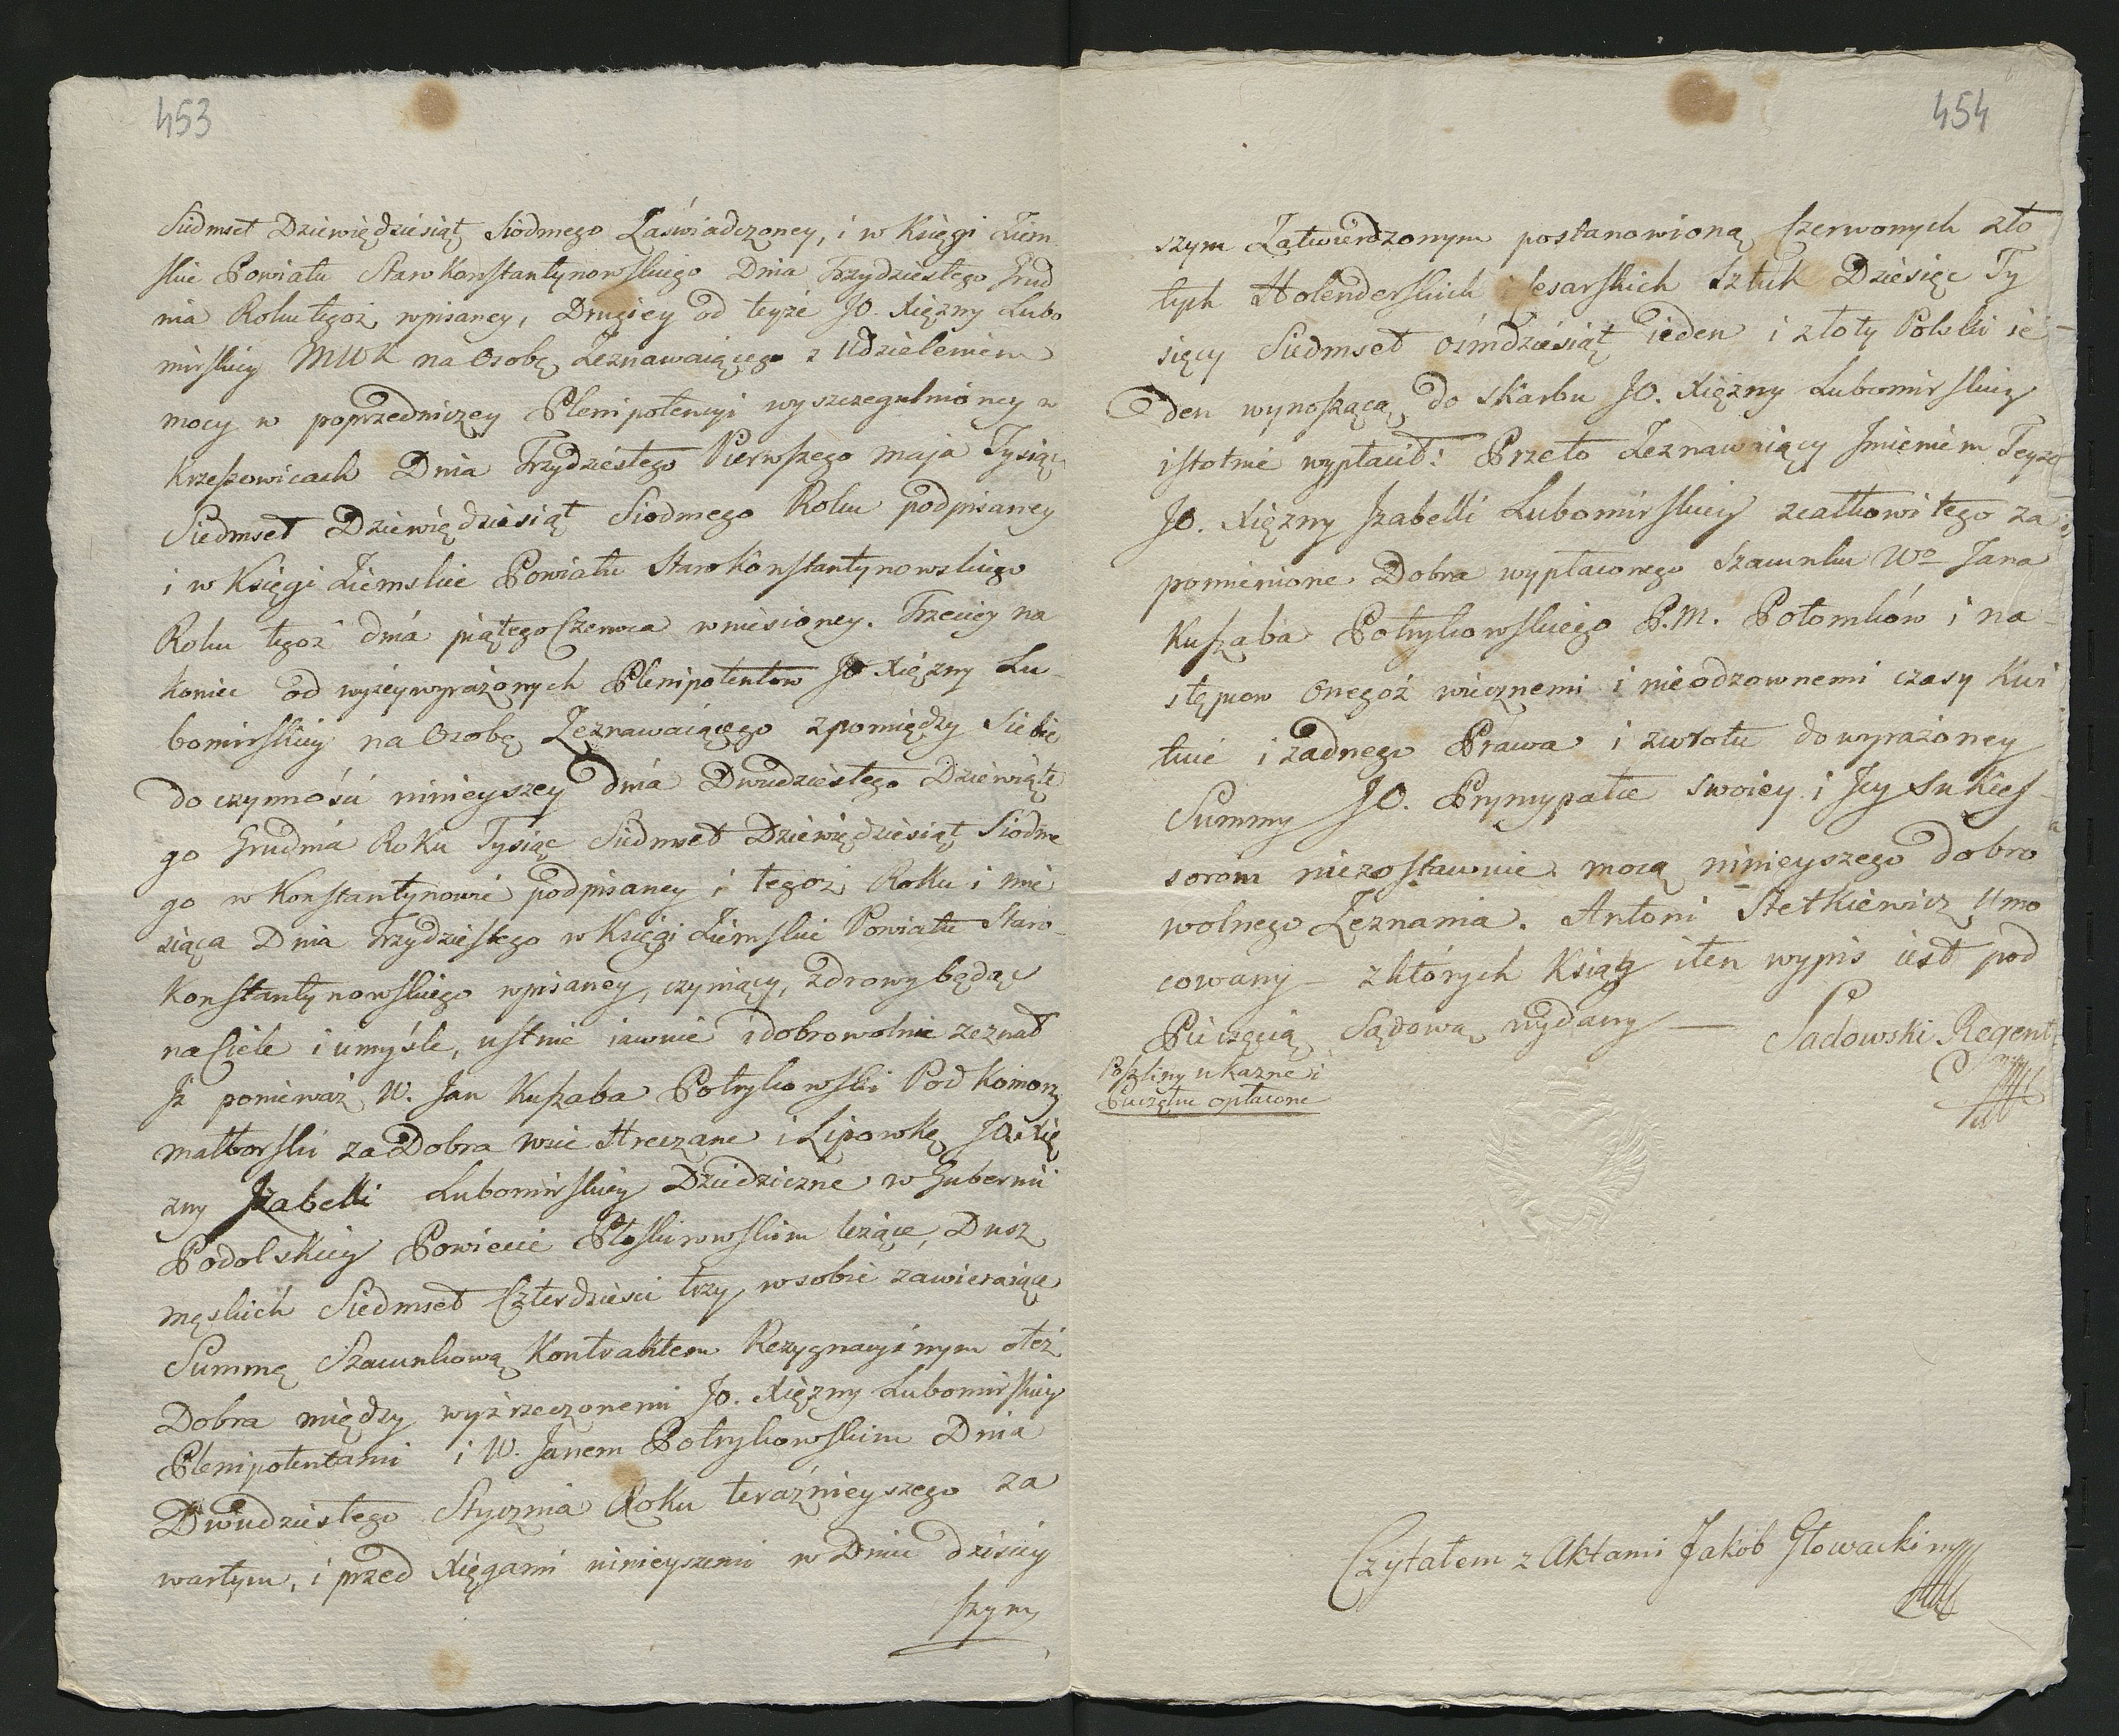 453
Siedmset Dziewiędziesiąt Siodmego Zaświadczoney, i w Księgi Ziem
skie Powiatu Starokonstantynowskiego Dnia Trzydziestego Grud
nia Roku tegoż wpisaney, Drugiey od teyże JO. Xiężny Lubo
mirskiey na Osobę Zeznawaiącego z Udzieleniem
mocy w poprzedniczey Plenipotencyi wyszczegulnioney w
Krzeszowicach Dnia Trzydziestego Pierwszego Maja Tysiąc
Siedmset Dziewiędziesiąt Siodmego Roku podpisaney
i w Księgi Ziemskie Powiatu Starokonstantynowskiego
Roku tegoż dnia piątego Czerwca wniesioney. Trzeciey na
koniec od wyżeywyrażonych Plenipotentow JO Xiężny Lu
bomirskiey na Osobę Zeznawaiącego z pomiędzy Siebie
do czynności ninieyszey dnia Dwudziestego Dziewiąte
go Grudnia Roku Tysiąc Siedmset Dziewiędziesiąt Siodme
go w Konstantynowie podpisaney i tegoż Roku i mie
siąca Dnia Trzydziestego w Księgi Ziemskie Powiatu Staro-
Konstantynowskiego wpisaney, czyniący, zdrowy będąc
na Ciele i umyśle, ustnie iawnie i dobrowolnie zeznał
Iż ponieważ W. Jan Kuszaba Potrykowski Podkomorzy
malborski za Dobra wsie Hreczane i Lipowkę JO. Xię
żny Izabelli Lubomirskiey Dziedziczne w Gubernii
Podolskiey Powiecie Płoskirowskim leżące, Dusz
męskich Siedmset Czterdzieści trzy, w sobie zawieraiące
Summę Szacunkową Kontraktem Rezygnacyinym o też
Dobra między wyż rzeczonemi JO. Xiężny Lubomirskiey
Plenipotentami i W. Janem Potrykowskim Dnia
Dwudziestego Stycznia Roku teraźnieyszego za
wartym, i przed Xięgami ninieyszemi w Dniu dzisiey
szym
454
szym Zatwierdzonym postanowioną Czerwonych zło
tych Holenderskich i Cesarskich Sztuk Dziesięć Ty
sięcy Siedmset ośmdziesiąt ieden i złoty Polski ie-
den wynoszącą do skarbu JO. Xiężny Lubomirskiey
istotnie wypłacił: Przeto Zeznawaiący Imieniem Teyże
JO. Xiężny Izabelli Lubomirskiey z całkowitego za
pomienione Dobra wypłaconego Szacunku Wo Jana
Kuszaba Potrykowskiego P.M. Potomków i na-
stępcow onegoż wiecznemi i nieodzownemi czasy Kwi
tuie i żadnego Prawa i zwrotu do wyrażoney
Summy JO. Pryncypałce swoiey i Jey Sukces-
sorom niezostawuie mocą ninieyszego dobro
wolnego Zeznania. Antoni Stetkiewicz Umo
cowany – z których Ksiąg i ten wypis iest pod
Pieczęcią Sądową wydany — Sadowski Regent
Poszliny ukazne i
Pieczętne opłacone
Czytałem z Aktami Jakób Głowacki